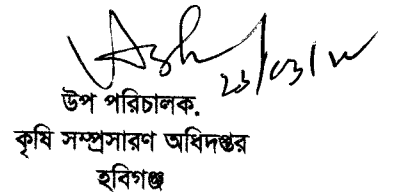 ২১/০৩/২
উপ পরিচালক.
কৃষি সম্প্রসারণ অধিদপ্তর
হবিগঞ্জ